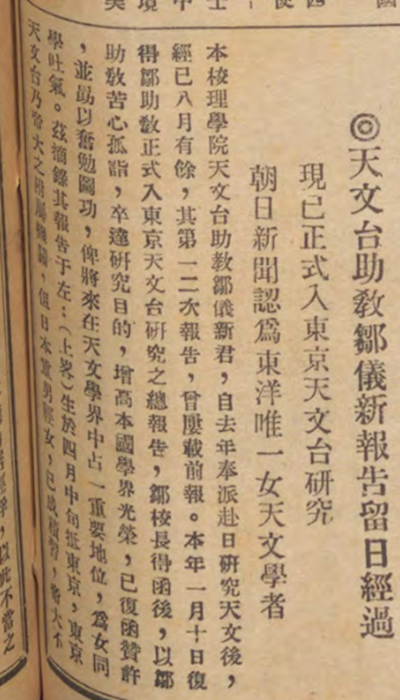 ◎天文台助教鄒儀新報告留日經過
現已正式入東京天文台研究
朝日新聞認爲東洋唯一女天文學者
本校理學院天文台助教鄒儀新君，自去年奉派赴日研究天文後，
經已八月有餘，其第一二次報告，曾屢載前報。本年一月十日復
得鄒助教正式入東京天文台研究之總報告，鄒校長得函後，以鄒
助教苦心孤詣，卒達研究目的，增高本國學界光榮，已復函贊許
，並勗以奮勉圖功，俾將來在天文學界中占一重要地位，爲女同
學吐氣。茲摘錄其報告于左：（上畧）生於四月中旬抵東京，東京
天文台乃帝大之附屬機關 但日本重男輕女，已成積習，帝大不
，以此不當之